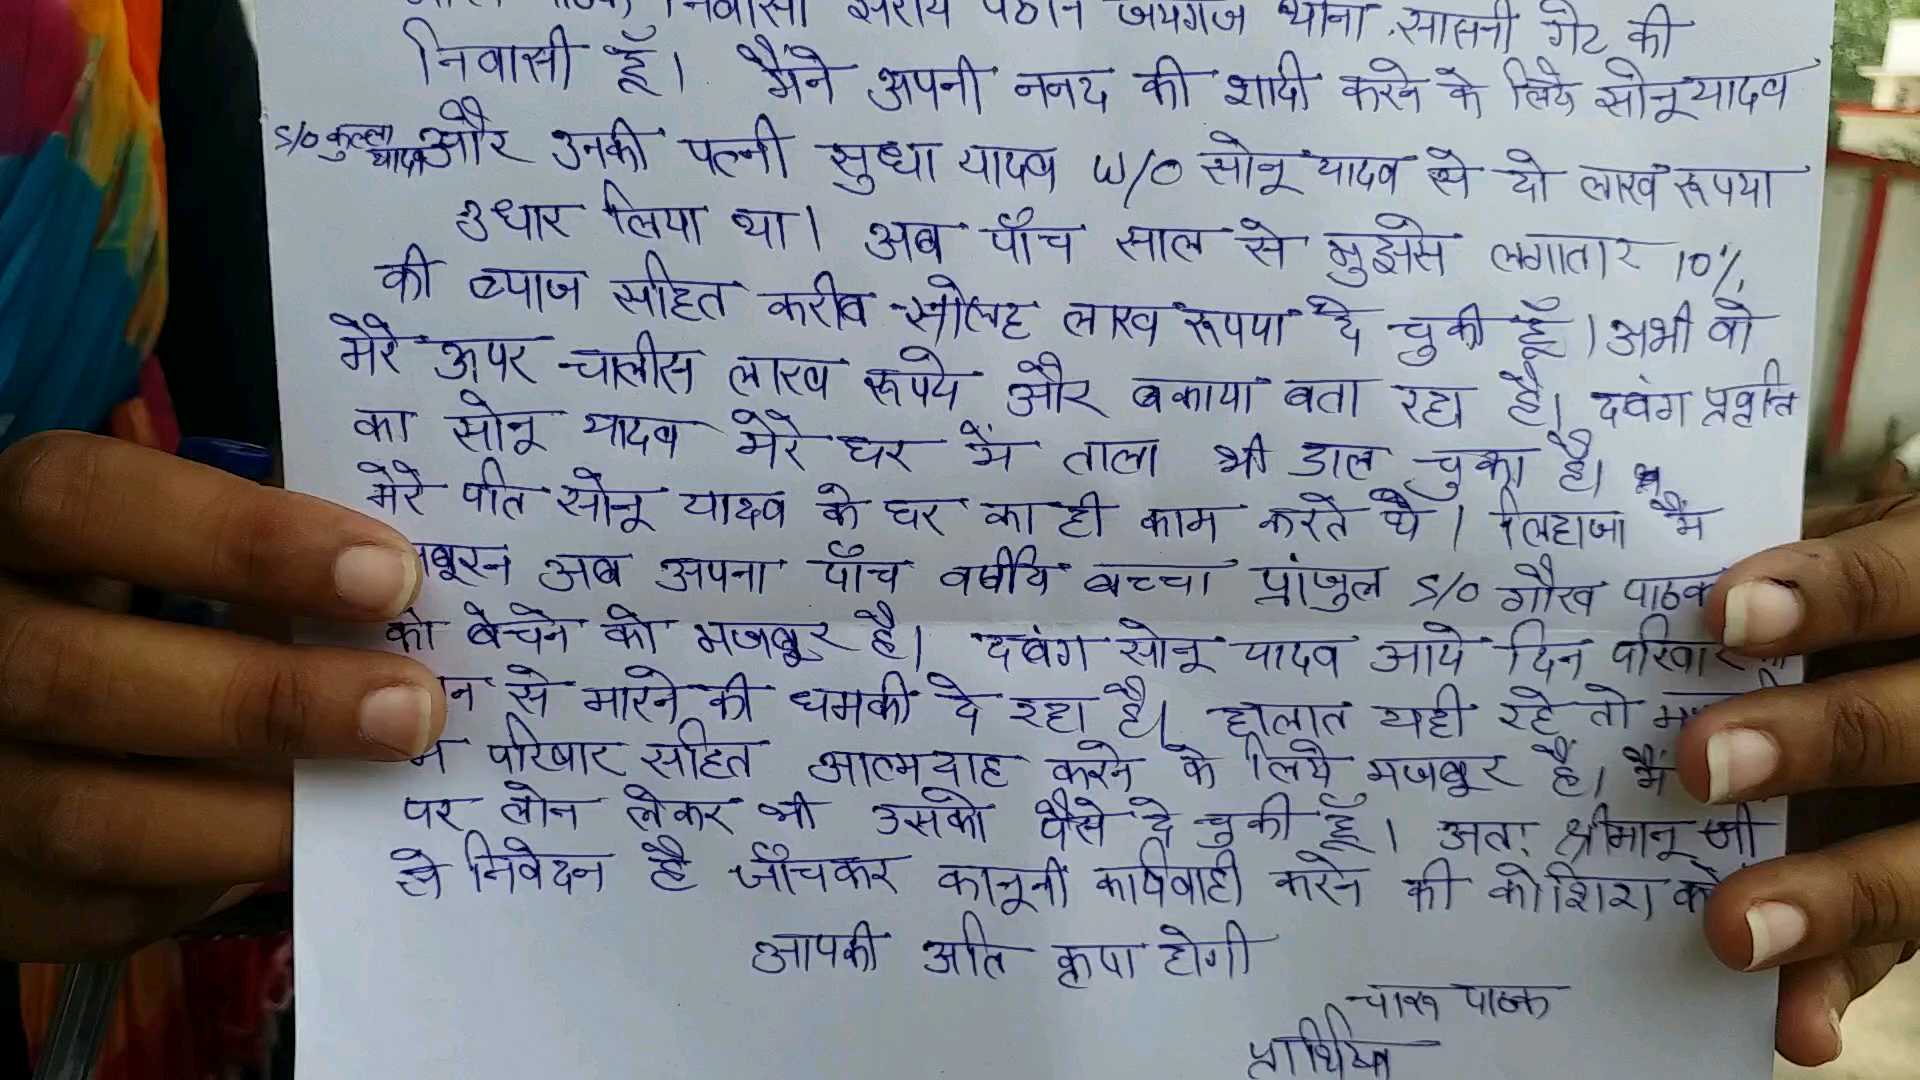 निवासी सराय पठान जयगंज थाना सासनी गेट की
निवासी हूँ। मैंने अपनी ननद की शादी करने के लिये सोनू यादव
s/o कुल्ला यादव और उनकी पत्नी सुधा यादव w/o सोनू यादव से दो लाख रूपया
उधार लिया था। अब पाँच साल से मुझसे लगातार 10%
की ब्याज सहित करीब सोलह लाख रूपया दे चुकी हूँ। अभी वो
मेरे ऊपर चालीस लाख रूपये और बकाया बता रहा है। दबंग प्रवृत्ति
का सोनू यादव मेरे घर में ताला भी डाल चुका है।
मेरे पति सोनू यादव के घर का ही काम करते थे। लिहाजा मैं
बूरन अब अपना पाँच वर्षीय बच्चा प्रांजुल s/o गौरव पाठक
को बेचने को मजबूर है। दबंग सोनू यादव आये दिन परिवार
न से मारने की धमकी दे रहा है। हालात यही रहे तो
परिवार सहित आत्मदाह करने के लिये मजबूर है। मैं
पर लोन लेकर भी उसको पैसे दे चुकी हूँ। अतः श्रीमान् जी
से निवेदन है जाँचकर कानूनी कार्यवाही करने की कोशिश करें
आपकी अति कृपा होगी
चारू पाठक
प्रार्थिया